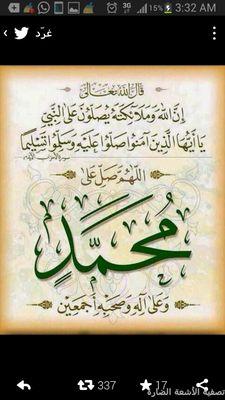 15% 3:32 AM
غرّد
قال الله تعالى
إِنَّ اللَّهَ وَمَلَائِكَتَهُ يُصَلُّونَ عَلَى النَّبِيِّ
يَا أَيُّهَا الَّذِينَ آمَنُوا صَلُّوا عَلَيْهِ وَسَلِّمُوا تَسْلِيمًا
اللَّهُمَّ صَلِّ عَلَى
مُحَمَّدٍ
وَعَلَى آلِهِ وَصَحْبِهِ أَجْمَعِين
337 17
تصفية الأشعة الضارة